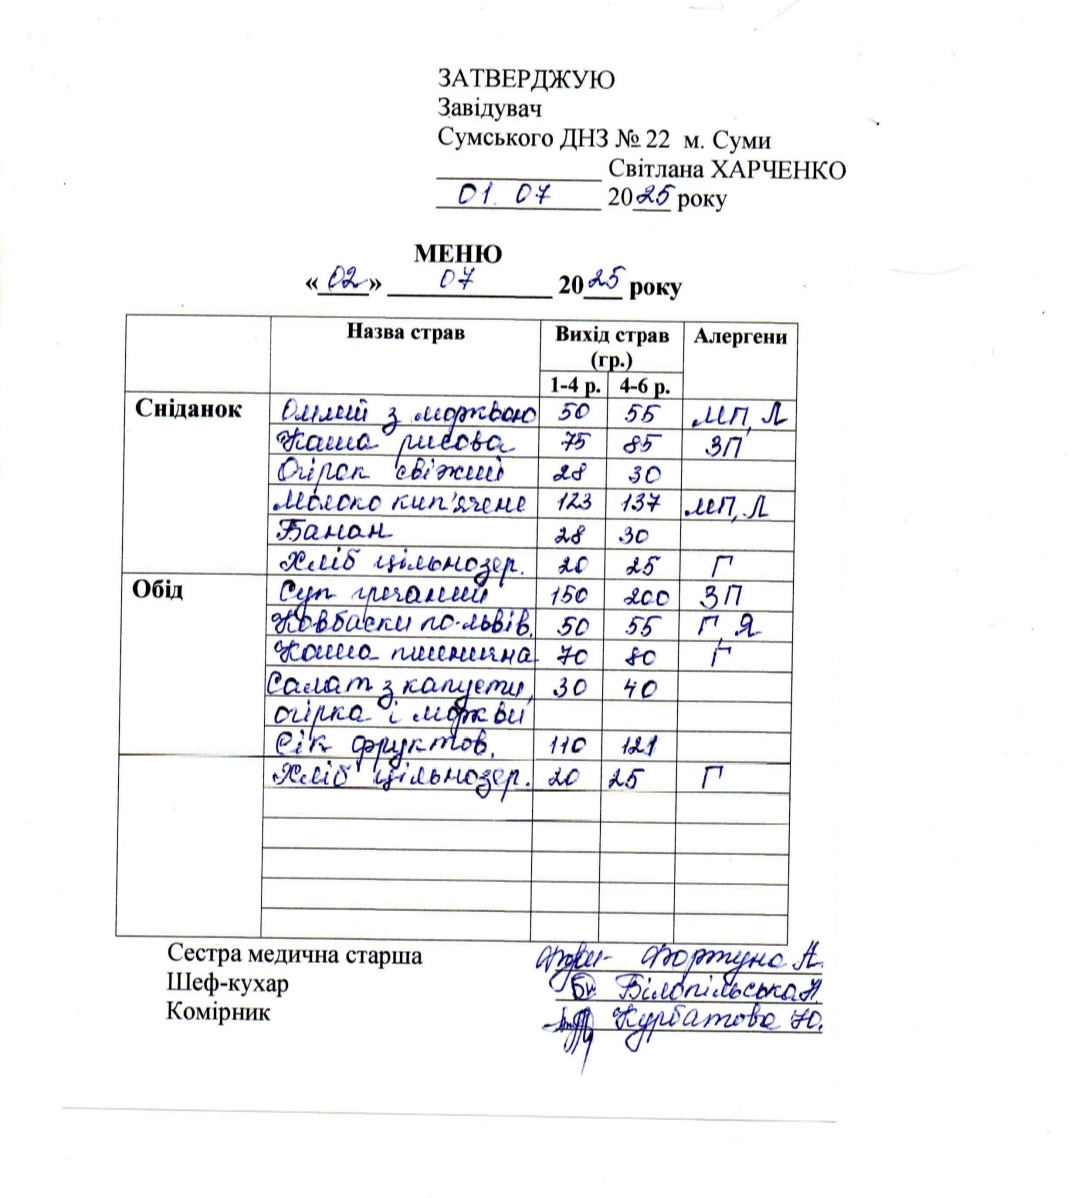 ЗАТВЕРДЖУЮ
Завідувач
Сумського ДНЗ № 22 м. Суми
Світлана ХАРЧЕНКО
01.07 2025 року
МЕНЮ
«02» 07 2025 року
Назва страв Вихід страв (гр.) Алергени
1-4 р. 4-6 р.
Сніданок Омлет з морквою 50 55 МП, Л
Каша рисова 75 85 ЗП
Огірок свіжий 28 30
Молоко кип'ячене 123 137 МП, Л
Банан 28 30
Хліб цільнозер. 20 25 Г
Обід Суп гречаний 150 200 ЗП
Ковбаски по-львів. 50 55 Г, Я
Каша пшенична 70 80 Г
Салат з капусти, 30 40
огірка і моркви
Сік фруктов. 110 121
Хліб цільнозер. 20 25 Г
Сестра медична старша Фортуна А.
Шеф-кухар Білопільська Н
Комірник Курбатова Ю.